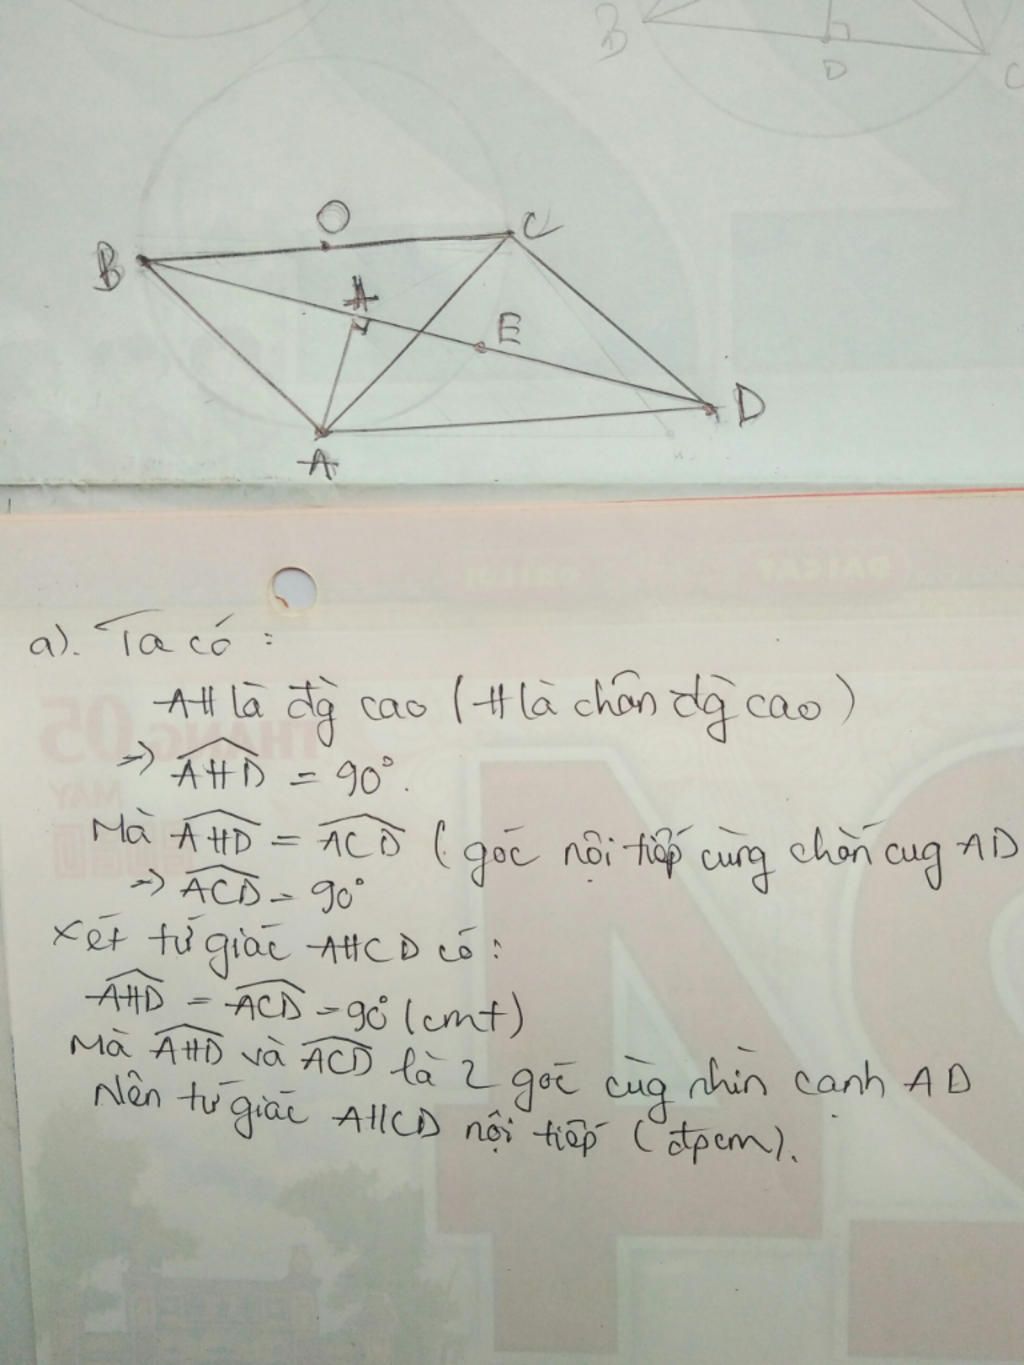 B
D
C
O
C
B
H
E
D
A
a). Ta có :
AH là đg̀ cao (H là chân đg̀ cao)
=> AHD = 90°.
Mà AHD = ACD (góc nội tiếp cùng chắn cug AD
=> ACD = 90°
Xét tứ giác AHCD có:
AHD = ACD = 90° (cmt)
Mà AHD và ACD là 2 góc cùg nhìn cạnh AD
Nên tứ giác AHCD nội tiếp (đpcm).